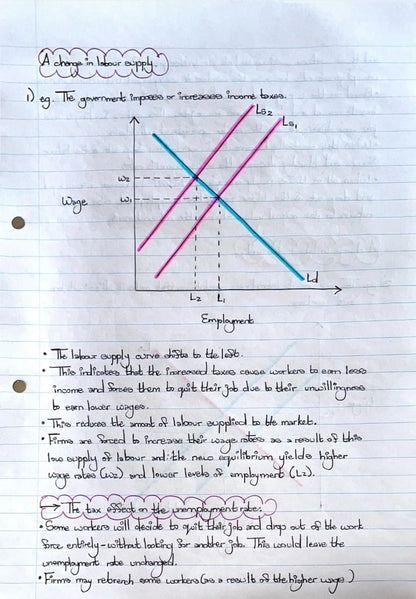 A change in labour supply.
1) eg. The government imposes or increases income taxes.
Ls2
Ls1
w2
Wage
w1
Ld
L2 L1
Employment
• The labour supply curve shifts to the left.
• This indicates that the increased taxes cause workers to earn less
income and forces them to quit their job due to their unwillingness
to earn lower wages.
• This reduces the amount of labour supplied to the market.
• Firms are forced to increase their wage rates as a result of this
low supply of labour and ∴ the new equilibrium yields higher
wage rates (w2) and lower levels of employment (L2).
→ The tax effect on the unemployment rate:
• Some workers will decide to quit their job and drop out of the work
force entirely - without looking for another job. This would leave the
unemployment rate unchanged.
• Firms may retrench some workers (as a result of the higher wage)